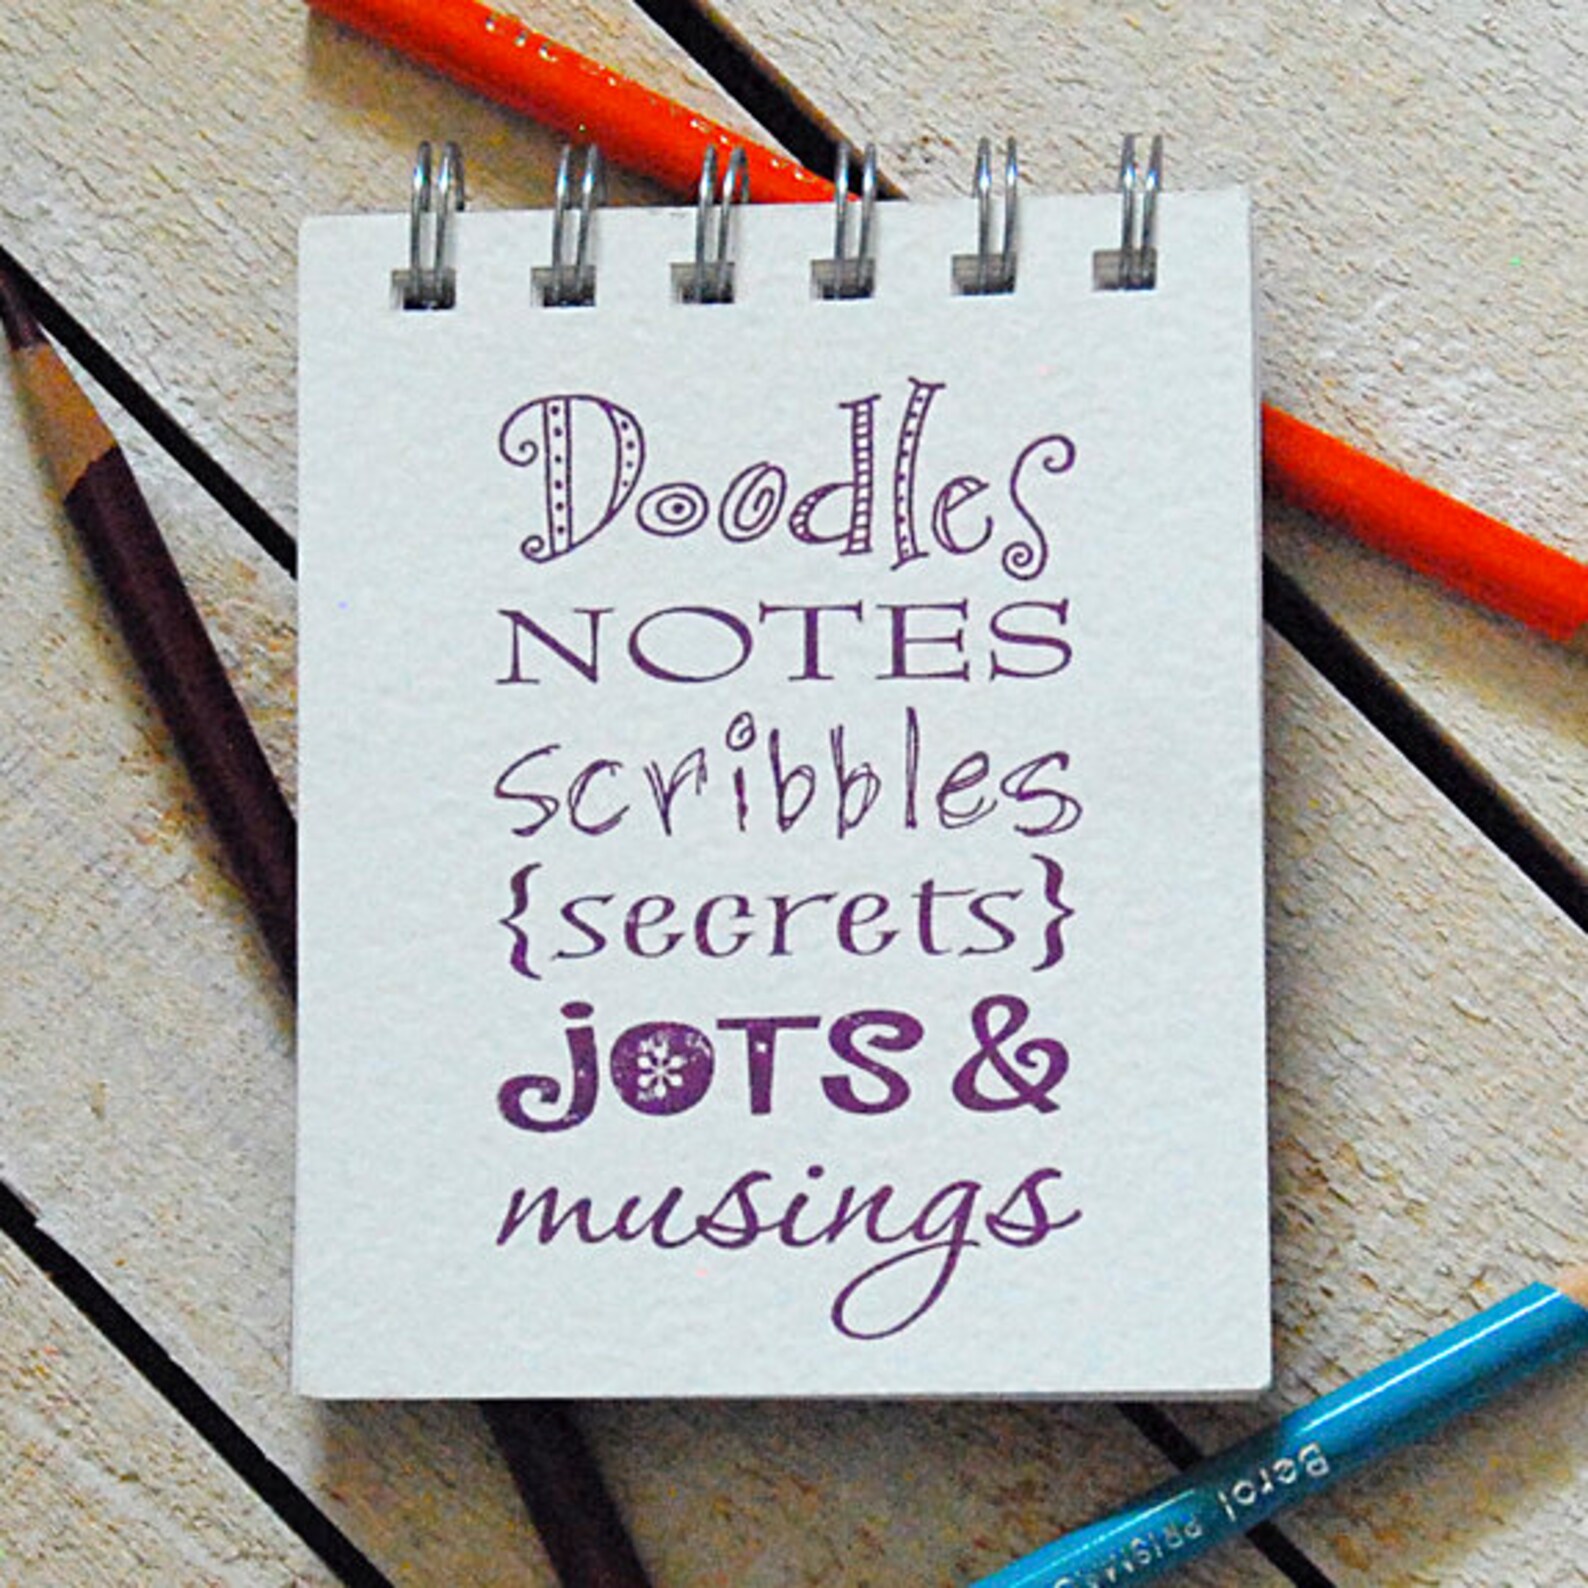 Doodles
NOTES
scribbles
{secrets}
jOTS &
musings
Berol PRISMA